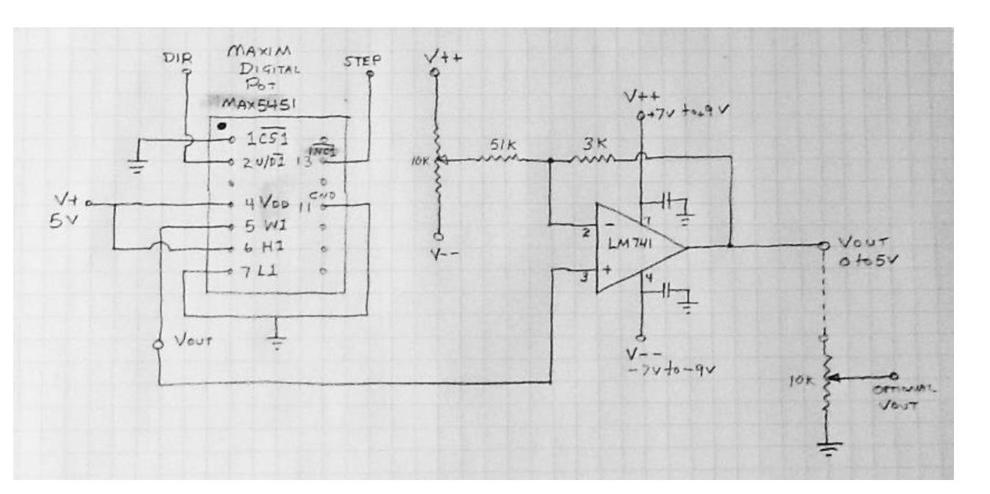 DIR
MAXIM
DIGITAL
POT
MAX5451
STEP
1 CS1
2 U/D1
13 INC1
4 VDD
11 GND
5 W1
6 H1
7 L1
V+
5V
VOUT
V++
10K
V--
51K
3K
V++
+7V to +9V
2
3
7
4
LM741
-
+
V--
-7V to -9V
VOUT
0 to 5V
10K
OPTIONAL
VOUT